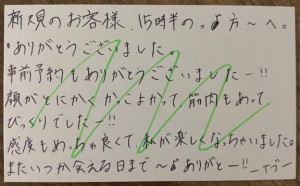 新規のお客様、15時半の っ 方〜へ。
・ありがとうございました
事前予約もありがとうございましたー!!
顔がとにかくかっこよかって筋肉もあって
びっくりでしたー!!
感度もめっちゃ良くて私が楽しくなっちゃいました。
またいつか会える日まで〜♪ありがとー!!